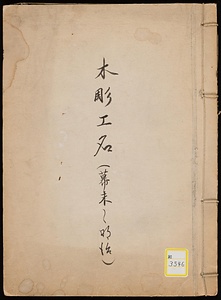 木彫工名(幕末〜明治)
3346